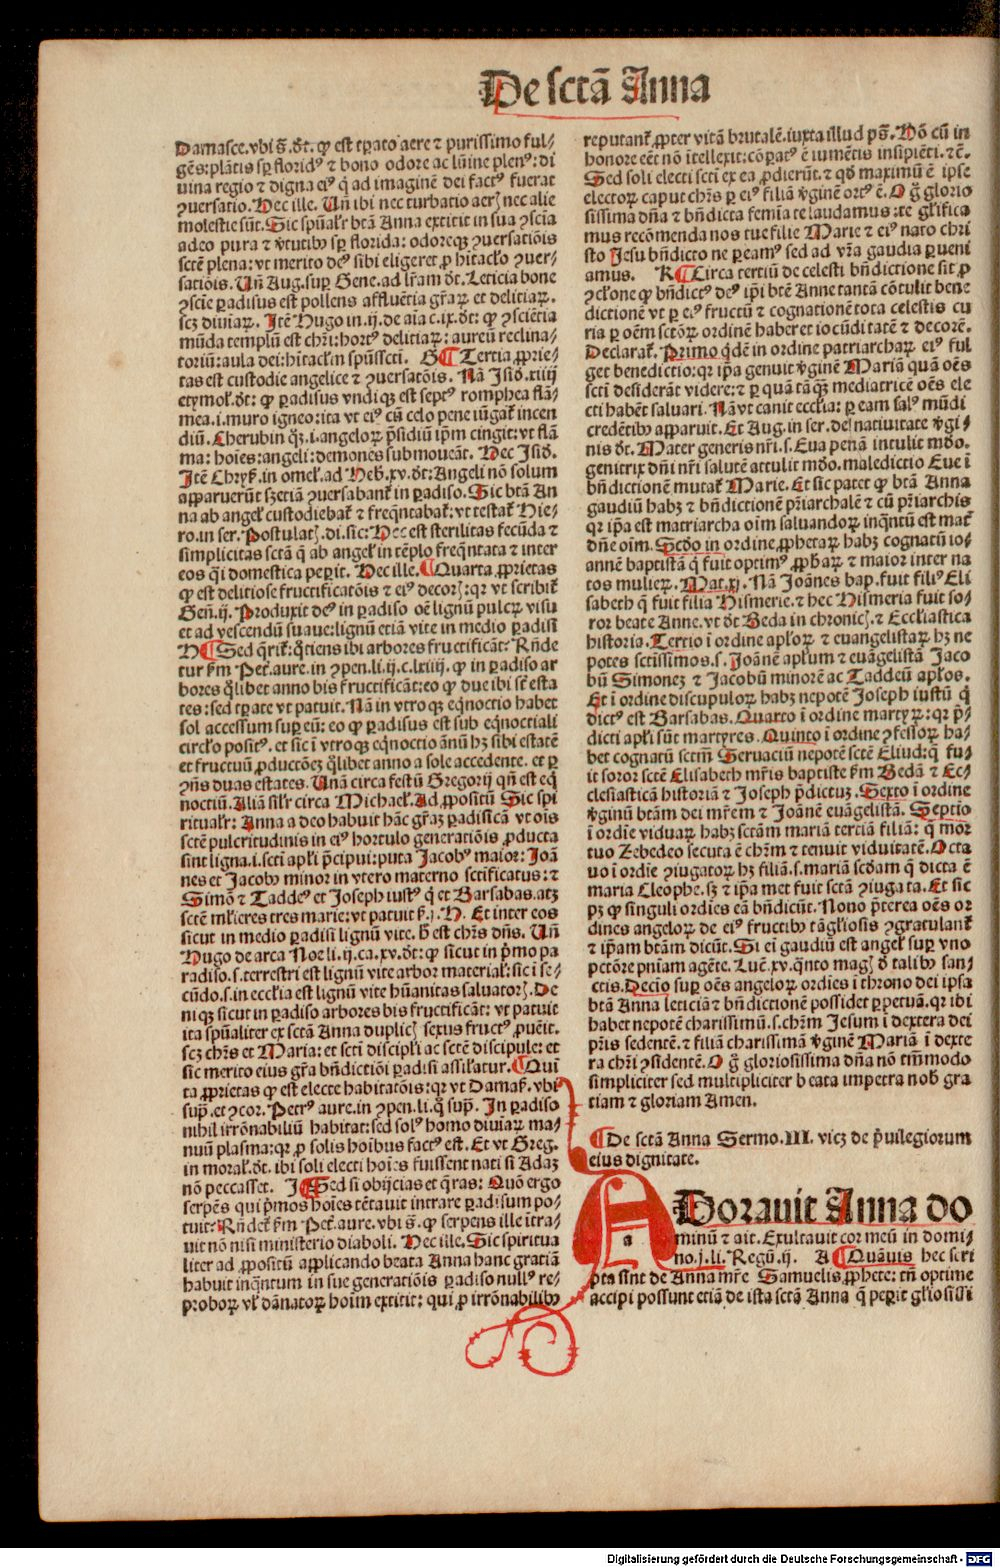 De sctā Anna
Damasce.vbi s̄.dt. ꝙ est tꝑato aere ⁊ purissimo ful⸗
gēs:plātis sꝑ floridꝰ ⁊ bono odore ac lūine plenꝰ: di
uina regio ⁊ digna eiꝰ q̇ ad imaginē dei factꝰ fuerat
ꝯuersatio. Hec ille. Uñ ibi nec turbatio aeris nec alie
molestie sūt. Sic spūalr̄ btā Anna extitit in sua ꝯscīa
adeo pura ⁊ v̄tutibꝰ sꝑ florida: odoreqꝫ ꝯuersatiōis
sctē plena: vt merito deꝰ sibi eligeret ꝓ hītacl̄o ꝯuer⸗
satiōis. Uñ Aug. sup Gene. ad lr̄am dt. Leticia bone
ꝯscīe ꝑadisus est pollens affluētia gr̄aꝝ et delitiaꝝ.
scꝫ diuiaꝝ. Itē Hugo in.ij. de aīa c.ix.dt: ꝙ ꝯsciētia
mūda templū est chr̄i: hortꝰ delitiaꝝ: aureū reclina⸗
toriū: aula dei: hītacl̄m spūsscti. G ¶ Tertia ꝓprie⸗
tas est custodie angelice ⁊ ꝯuersatōis. Nā Isid. xiiij
etymol̄.dt: ꝙ ꝑadisus vndiqꝫ est septꝰ romphea flā⸗
mea.i.muro igneo: ita vt eiꝰ cū celo pene iūgat̄ incen
diū. Cherubin qꝫ.i.angeloꝝ p̄sidiū ip̄m cingit: vt flā
ma: hoīes: angeli: demones submoueāt. Hec Isid.
Itē Chrys̄. in omel̄. ad Heb̄.xv.dt: Angeli nō solum
apparuerūt sꝫ etiā ꝯuersabant̄ in ꝑadiso. Sic btā An
na ab angel̄ custodiebat̄ ⁊ freq̄ntabat̄: vt testat̄ Hie⸗
ro. in ser. Postulatis.di.sic: Hec est sterilitas fecūda ⁊
simplicitas sctā q̄ ab angel̄ in tēplo freq̄ntata ⁊ inter
eos q̄i domestica peꝑit. Hec ille. ¶ Quarta ꝓprietas
ꝙ est delitiose fructificatōis ⁊ eiꝰ decoris: qꝛ vt scribit̄
Gen̄.ij. Produxit deꝰ in ꝑadiso oē lignū pulcꝝ visu
et ad vescendū suaue: lignū etiā vite in medio ꝑadisi
H ¶ Sed q̄rit̄: q̇tiens ibi arbores fructificāt: Rn̄de
tur s̄m Pet̄. aure. in ꝯpen.li.ij.c.lxiiij. ꝙ in ꝑadiso ar
bores q̄libet anno bis fructificāt: eo ꝙ due ibi sr̄ esta
tes: sed tꝑate vt patuit. Nā in vtroqꝫ eq̄noctio habet
sol accessum suꝑ eū: eo ꝙ ꝑadisus est sub eq̄noctiali
circl̄o positꝰ. et sic i vtroqꝫ eq̄noctio ānū hꝫ sibi estatē
et fructuū ꝓductōeꝫ q̄libet anno a sole accedente. et ꝑ
ꝯñs duas estates. Unā circa festū Gregorij qn̄ est eq̄
noctiū. Aliā sil̄r circa Michael̄. Ad ꝓpositū Sic spi
ritualr̄: Anna a deo habuit hāc gr̄aꝫ ꝑadisicā vt oīs
sctē pulcritudinis in eiꝰ hortulo generatiōis ꝓducta
sint ligna.i.scti apl̄i p̄cipui: puta Jacobꝰ maior: Joā
nes et Jacobꝰ minor in vtero materno sctificatus: ⁊
Simō ⁊ Taddeꝰ et Joseph iustꝰ q̇ et Barsabas. atꝫ
sctē ml̄ieres tres marie: vt patuit s̄.j. H. Et inter eos
sicut in medio ꝑadisi lignū vite. h̄ est chr̄s dn̄s. Uñ
Hugo de arca Noe li.ij.ca.xv.dt: ꝙ sicut in p̄mo pa
radiso.s.terrestri est lignū vite arbor material̄: sic i se⸗
cūdo.s.in ecclīa est lignū vite hūanitas saluatoris. De
niqꝫ sicut in ꝑadiso arbores bis fructificāt: vt patuit
ita spūaliter ex sctā Anna duplicis sexus fructꝰ ꝓuēit.
scꝫ chr̄s et Maria: et scti discipl̄i ac sctē discipule: et
sic merito eius gr̄a bn̄dictiōi ꝑadisi assil̄atur. ¶ Qui
ta ꝓprietas ꝙ est electe habitatōis: qꝛ vt Damas̄. vbi
sup̄. et ꝯcor. Petrꝰ aure. in ꝯpen.li.q̇ sup̄. In ꝑadiso
nihil irrōnabiliū habitat: sed solꝰ homo diuiaꝝ ma⸗
nuū plasma: qꝛ ꝓ solis hoībus factꝰ est. Et vt Greg.
in moral̄.dt. ibi soli electi hoīes fuissent nati si Adaꝫ
nō peccasset. I ¶ Sed si obijcias et q̄ras: Quō ergo
serpēs qui p̄mos hoīes tētauit intrare ꝑadisum po⸗
tuit: Rn̄det̄ s̄m Pet̄. aure. vbi s̄. ꝙ serpens ille itra⸗
uit nō nisi ministerio diaboli. Hec ille. Sic spiritua
liter ad ꝓpositū applicando beata Anna hanc gratiā
habuit inq̄ntum in sue generatiōis ꝑadiso nullꝰ re⸗
proboꝝ vl̄ dānatoꝝ hoīm extitit: qui ꝓ irrōnabilibꝰ
reputant̄ ꝓpter vitā brutalē. iuxta illud ps̄. Hō cū in
honore eēt nō itellexit: cōꝑatꝰ ē iumētis insipiēti. ⁊c̄.
Sed soli electi scti ex ea ꝓdierūt. ⁊ qd maximū ē ipse
electoꝝ caput chr̄s ꝑ eiꝰ filiā v̄ginē ortꝰ ē. O g̊ glorio
sissima dn̄a ⁊ bn̄dicta femīa te laudamus: te gl̄ifica
mus recōmenda nos tue filie Marie ⁊ eiꝰ nato chri
sto Jesu bn̄dicto ne ꝑeamꝰ sed ad vr̄a gaudia ꝑueni
amus. K ¶ Circa tertiū de celesti bn̄dictione sit ꝓ
ꝯcl̄one ꝙ bn̄dictꝰ deꝰ ip̄i btē Anne tantā cōtulit bene
dictionē vt ꝑ eiꝰ fructū ⁊ cognationē tota celestis cu
ria ꝑ oēm sctōꝝ ordinē haberet iocūditatē ⁊ decorē.
Declarat̄. Primo q̇dē in ordine patriarchaꝝ eiꝰ ful
get benedictio: qꝛ ip̄a genuit v̄ginē Mariā quā oēs
scti desiderāt videre: ⁊ ꝑ quā tāqꝫ mediatricē oēs ele
cti habēt saluari. Nā vt canit eccl̄ia: ꝑ eam salꝰ mūdi
credētibꝰ apparuit. Et Aug. in ser. de natiuitate v̄gi⸗
nis dt. Mater generis nr̄i.s. Eua penā intulit mdo.
genitrix dn̄i nr̄i salutē attulit mdo. maledictio Eue ī
bn̄dictionē mutat̄ Marie. Et sic patet ꝙ btā Anna
gaudiū habꝫ ⁊ bn̄dictionē pr̄iarchalē ⁊ cū pr̄iarchis
qꝛ ip̄a est matriarcha oīm saluandoꝝ inq̄ntū est mat̄
dn̄e oīm. Scdo in ordine ꝓphetaꝝ habꝫ cognatū io⸗
annē baptistā q̇ fuit optimꝰ ꝓph̄aꝝ ⁊ maior inter na
tos mulieꝝ. Mat.xj. Nā Joānes bap. fuit filiꝰ Eli
sabeth q̄ fuit filia Hismerie. ⁊ hec Hismeria fuit so⸗
ror beate Anne. vt dt Beda in chronicis. ⁊ Eccl̄iastica
historia. Tertio ī ordine apl̄oꝝ ⁊ euangelistaꝝ hꝫ ne
potes sctissimos.s. Joānē apl̄um ⁊ euāgelistā Jaco
bū Simonez ⁊ Jacobū minorē ac Taddeū apl̄os.
Et ī ordine discipuloꝝ habꝫ nepotē Joseph iustū q̇
dictꝰ est Barsabas. Quarto ī ordine martyꝝ: qꝛ p̄⸗
dicti apl̄i sūt martyres. Quinto ī ordine ꝯfessoꝝ ha⸗
bet cognatū sctm̄ Seruaciū nepotē sctē Eliud: q̄ fu⸗
it soror sctē Elisabeth mr̄is baptiste s̄m Bedā ⁊ Ec⸗
clesiasticā historiā ⁊ Joseph p̄dictuꝫ. Sexto ī ordine
v̄ginū btām dei mr̄em ⁊ Joānē euāgelistā. Septio
ī ordīe viduaꝝ habꝫ sctām mariā tertiā filiā: q̄ mor
tuo Zebedeo secuta ē chr̄m ⁊ tenuit viduitatē. Octa
uo ī ordīe ꝯiugatoꝝ hꝫ filiā.s. mariā scdam q̄ dicta ē
maria Cleophe. sꝫ ⁊ ip̄a met fuit sctā ꝯiugata. Et sic
pꝫ ꝙ singuli ordīes eā bn̄dicūt. Nono p̄terea oēs or
dines angeloꝝ de eiꝰ fructibꝰ tā gl̄iosis ꝯgratulant̄
⁊ ip̄am btām dicūt. Si em̄ gaudiū est angel̄ suꝑ vno
pctōre pniam agēte. Luc̄.xv. q̄nto magis d̄ talibꝰ san⸗
ctis. Decio suꝑ oēs angeloꝝ ordīes ī throno dei ipsa
btā Anna leticiā ⁊ bn̄dictionē possidet ꝑpetuā. qꝛ ibi
habet nepotē charissimū.s. chr̄m Jesum ī dextera dei
pr̄is sedentē. ⁊ filiā charissimā v̄ginē Mariā ī dexte
ra chr̄i ꝯsidentē. O g̊ gloriosissima dn̄a nō tm̄modo
simpliciter sed multipliciter beata impetra nob̄ gra
tiam ⁊ gloriam Amen.
¶ De sctā Anna Sermo.III. vicꝫ de p̄uilegiorum
eius dignitate.
ADorauit Anna do
minū ⁊ ait. Exultauit cor meū in domi⸗
no.j.li. Regū.ij. A ¶ Quāuis hec scri
pta sint de Anna mr̄e Samuelis ꝓphete: tn̄ optime
accipi possunt etiā de ista sctā Anna q̄ peꝑit gl̄iosissi
a
Digitalisierung gefördert durch die Deutsche Forschungsgemeinschaft - DFG